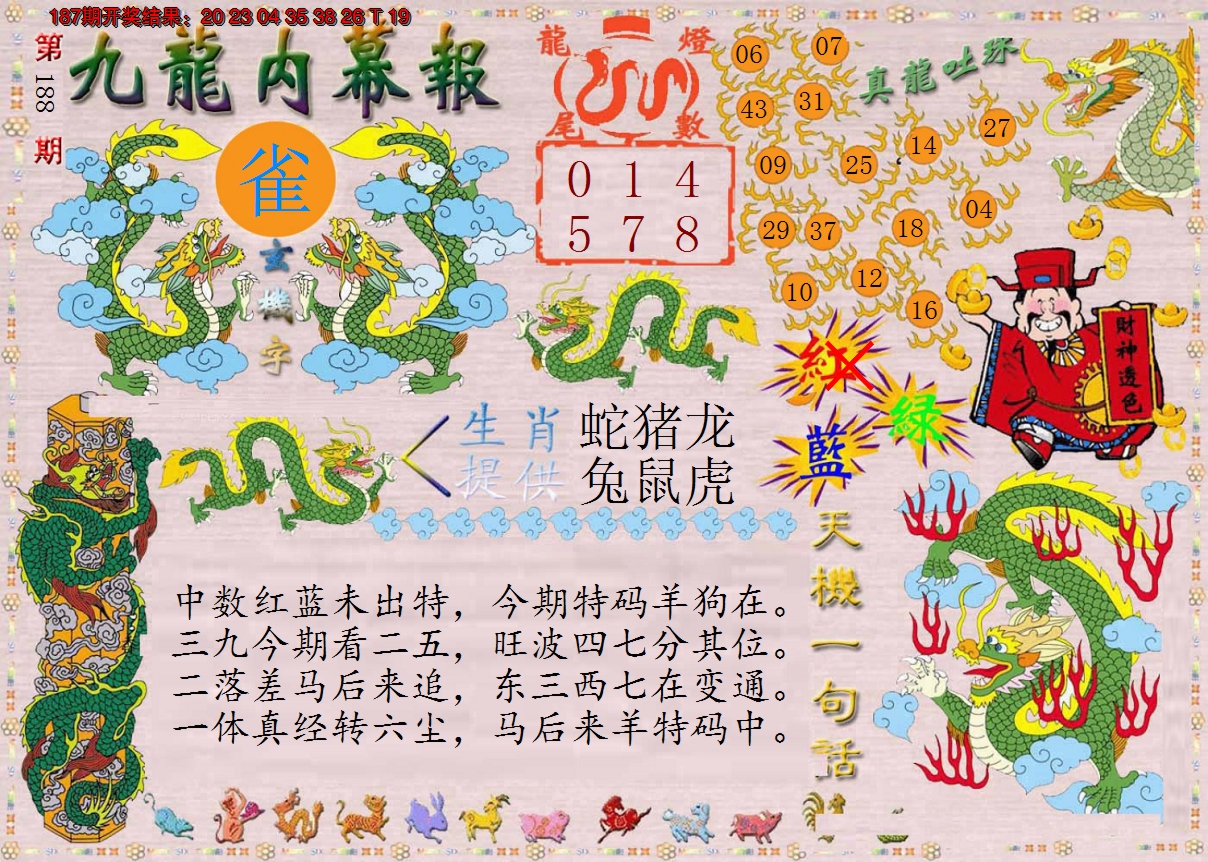 187期开奖结果：20 23 04 35 38 26 T 19
第188期
九龍内幕報
雀
玄機字
龍燈
尾數
0 1 4
5 7 8
06 07
43 31
09 25 14 27
29 37 18 04
10 12 16
真龍吐珠
財神透色
紅
綠
藍
生肖 蛇猪龙
提供 兔鼠虎
天機一句話
中数红蓝未出特，今期特码羊狗在。
三九今期看二五，旺波四七分其位。
二落差马后来追，东三西七在变通。
一体真经转六尘，马后来羊特码中。